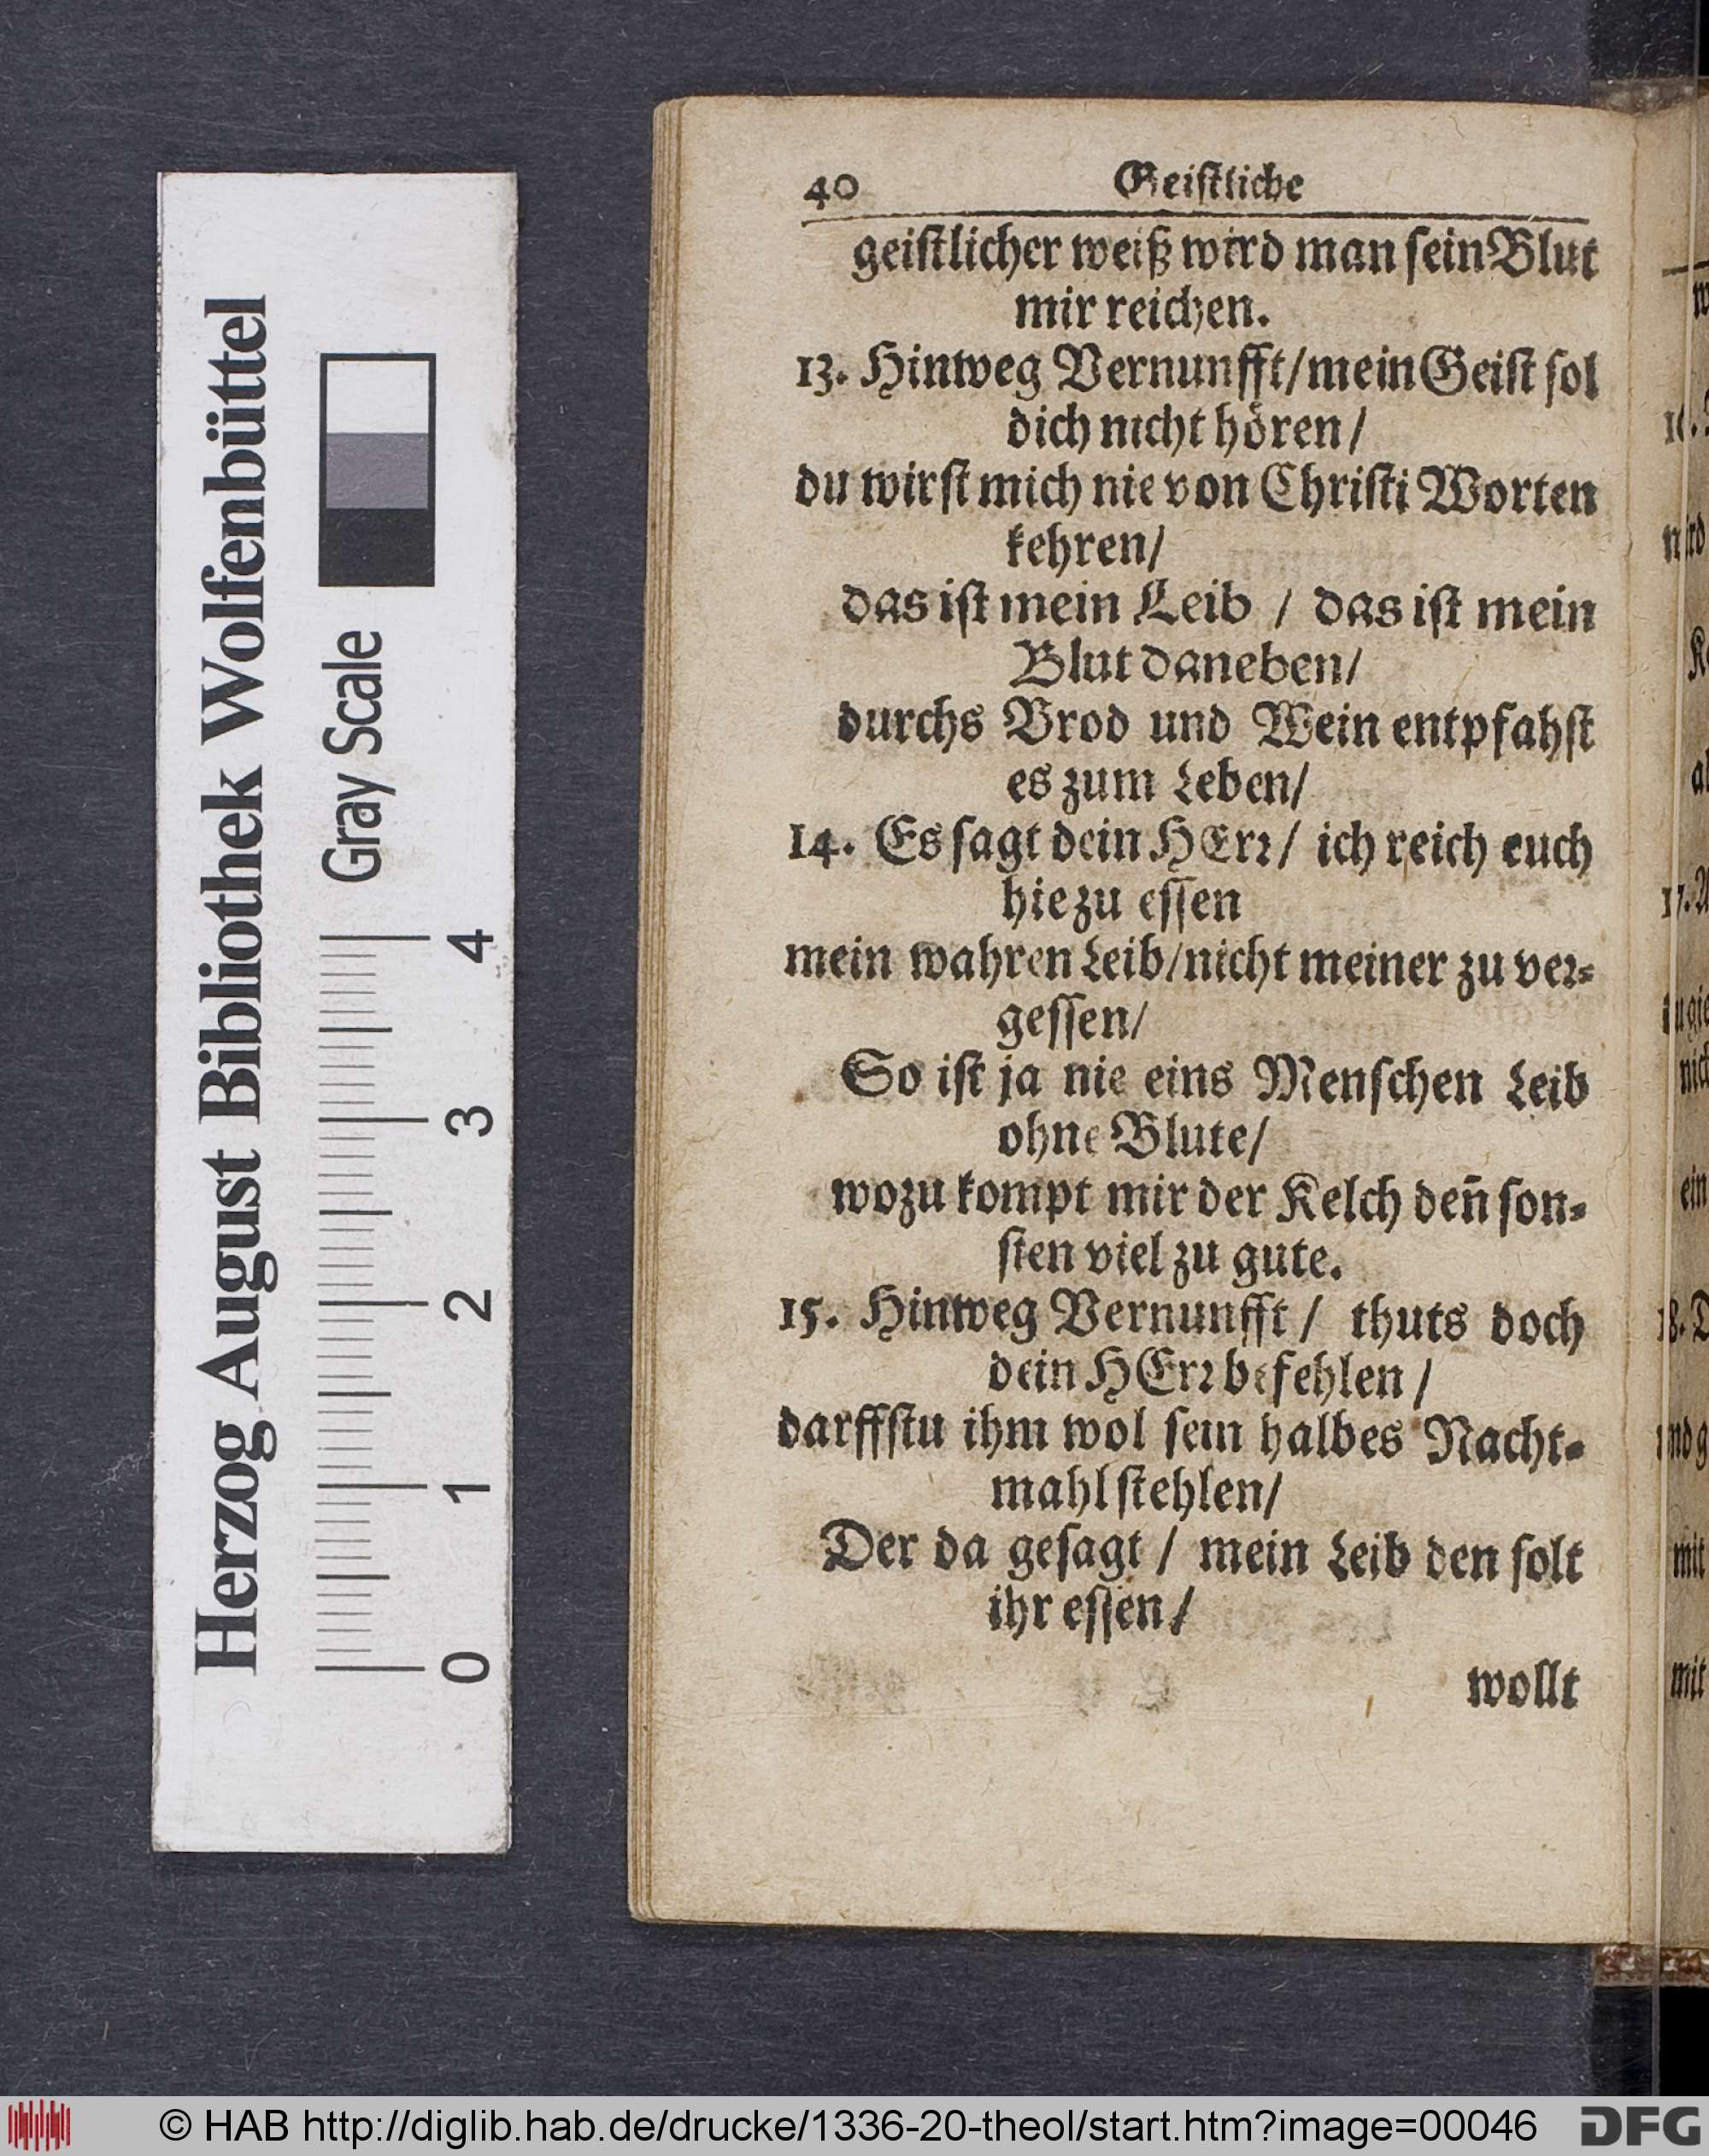 Herzog August Bibliothek Wolfenbüttel
Gray Scale
0 1 2 3 4
40 Geiſtliche
geiſtlicher weiß wird man ſein Blut
mir reichen.
13. Hinweg Vernunfft/mein Geiſt ſol
dich nicht hören/
du wirſt mich nie von Chriſti Worten
kehren/
das iſt mein Leib / das iſt mein
Blut daneben/
durchs Brod und Wein entpfahſt
es zum Leben/
14. Es ſagt dein HErꝛ/ ich reich euch
hie zu eſſen
mein wahren Leib/nicht meiner zu veꝛ-
geſſen/
So iſt ja nie eins Menſchen Leib
ohne Blute/
wozu kompt mir der Kelch deñ ſon-
ſten viel zu gute.
15. Hinweg Vernunfft / thuts doch
dein HErꝛ befehlen /
darffſtu ihm wol ſein halbes Nacht-
mahl ſtehlen/
Der da geſagt / mein Leib den ſolt
ihr eſſen/
wollt
© HAB http://diglib.hab.de/drucke/1336-20-theol/start.htm?image=00046
DFG